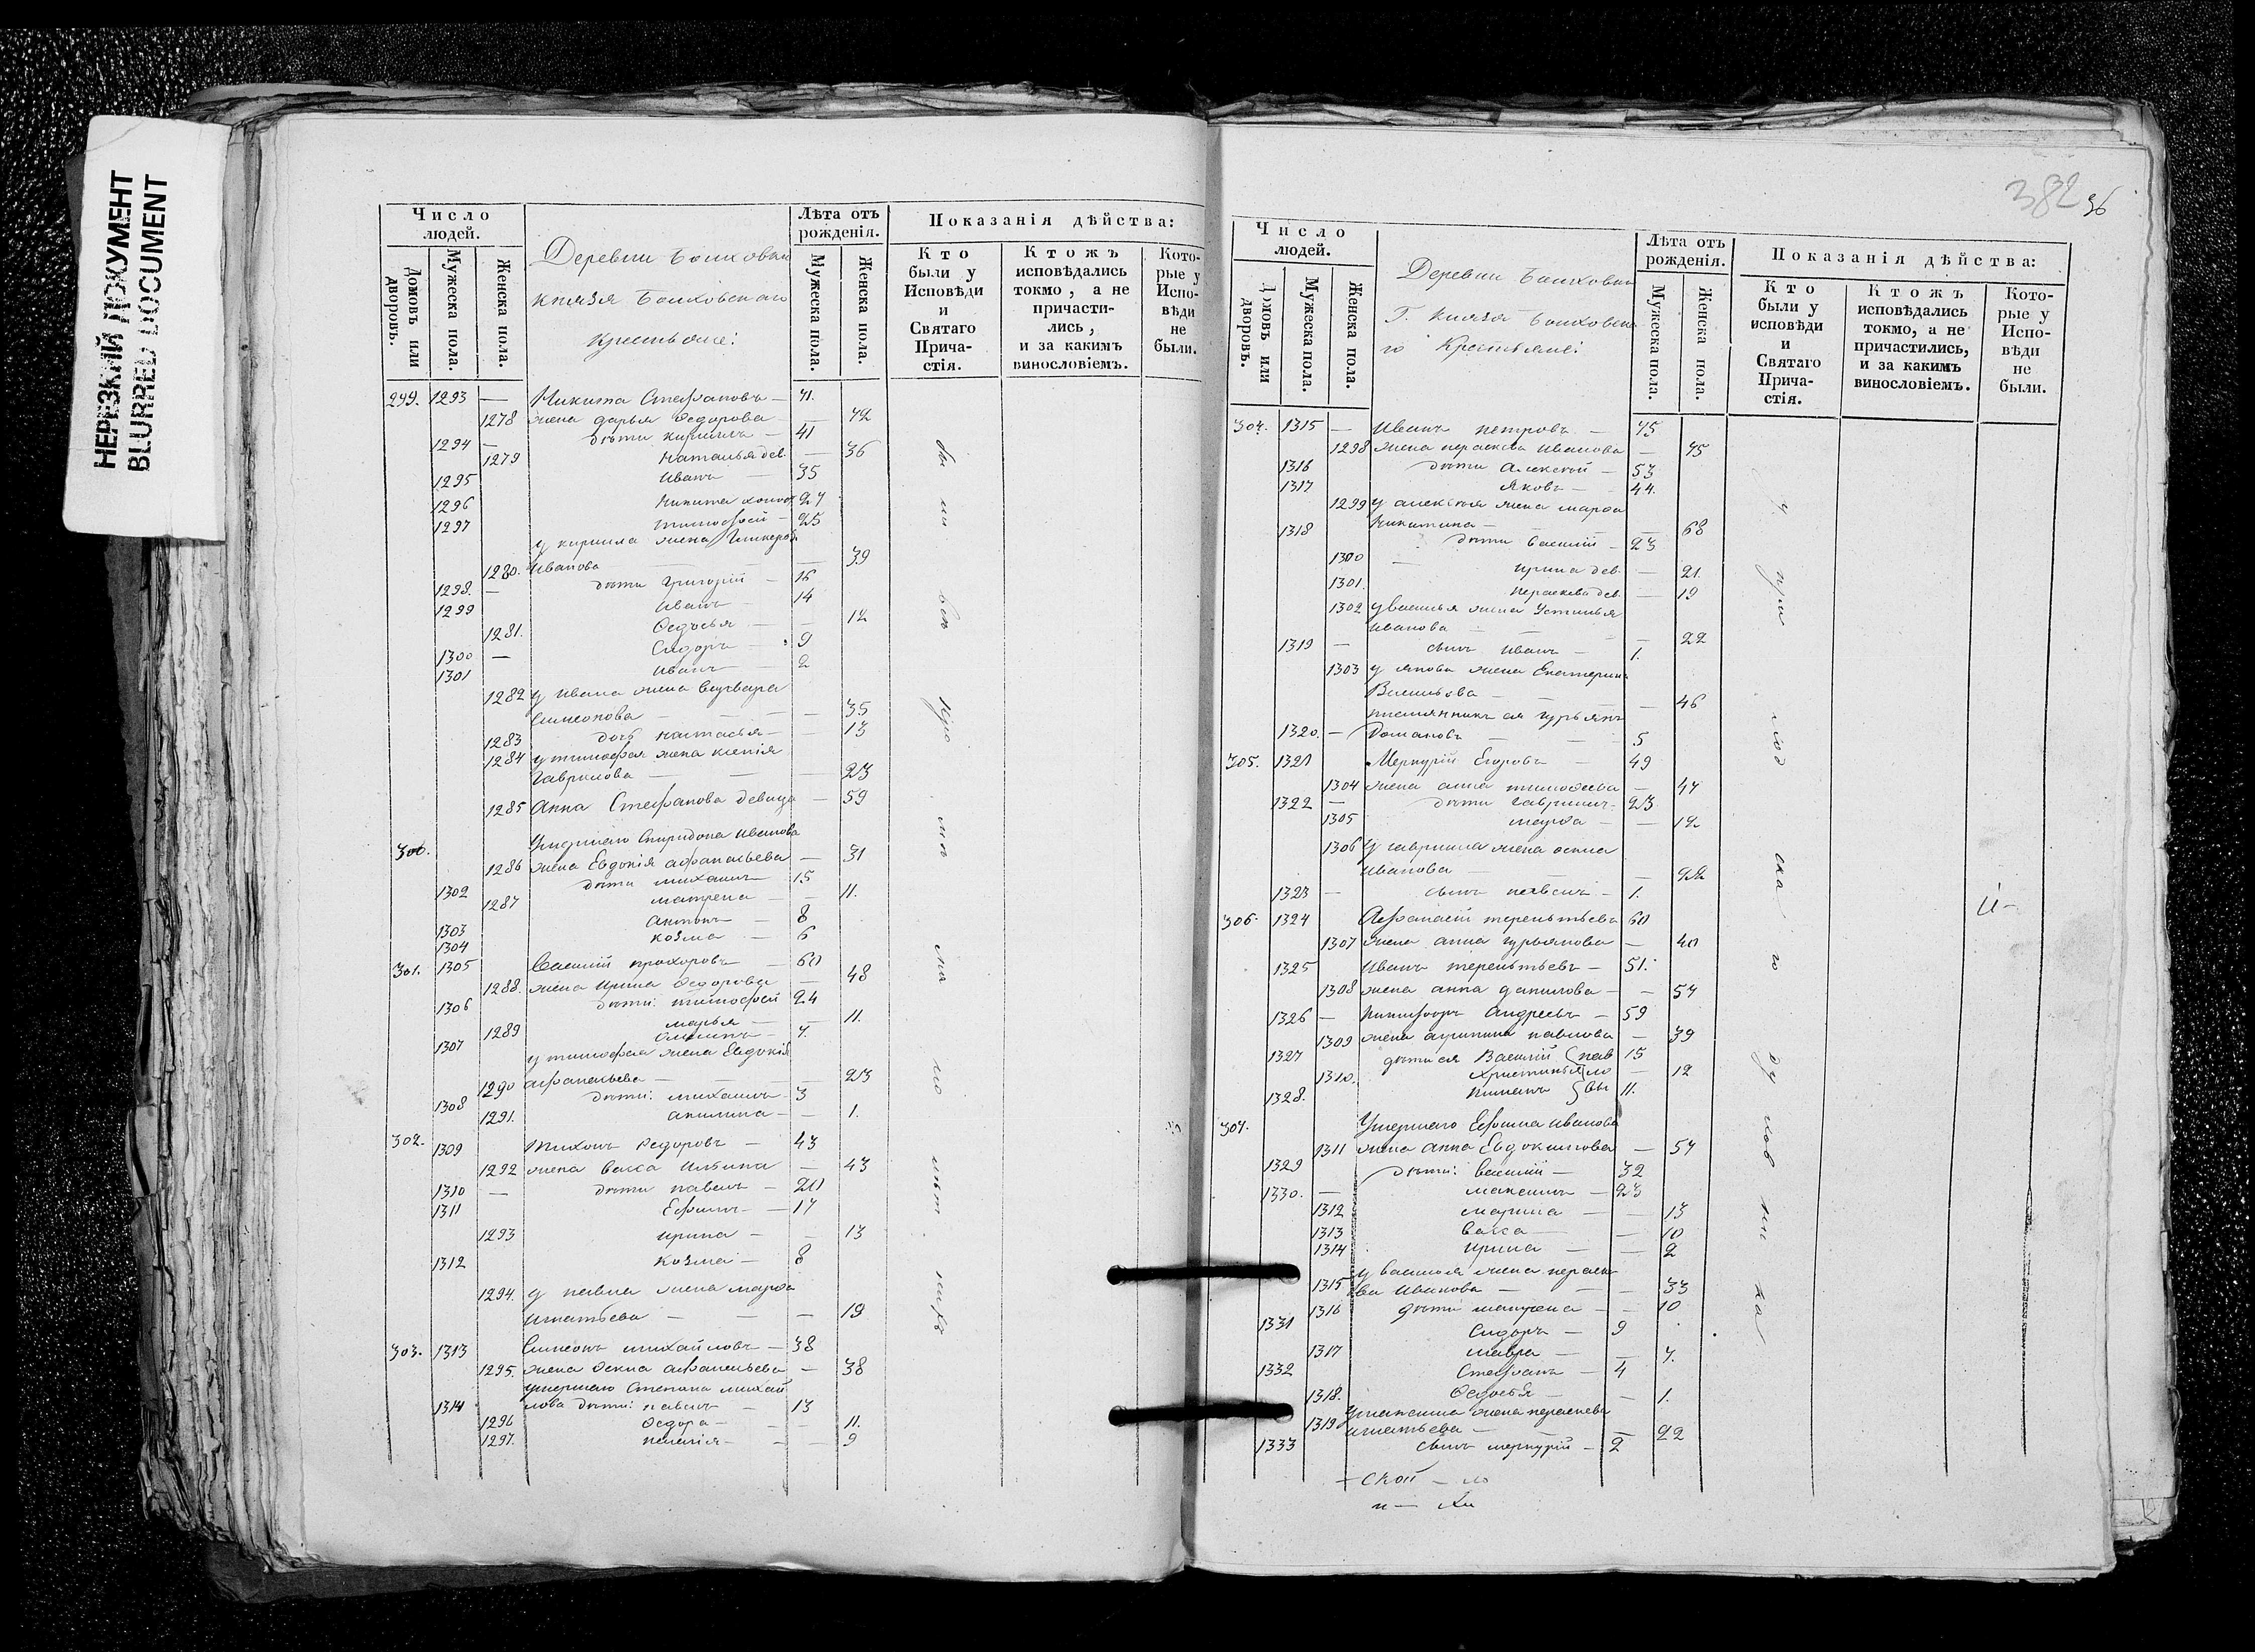 НЕРЕЗКИЙ ДОКУМЕНТ
BLURRED DOCUMENT
Число людей.
Домовъ или дворовъ.
Мужеска пола.
Женска пола.
Деревни
князя
Крестьяне:
Лѣта отъ рожденія.
Мужеска пола.
Женска пола.
Показанія дѣйства:
Кто были у Исповѣди и Святаго Прича- стія.
Ктожъ исповѣдались токмо, а не причасти- лись, и за какимъ винословіемъ.
Кото- рые у Испо- вѣди не были.
299. 1293 — Никита Стефановъ — 71.
1278 жена дарья Ѳедорова 72
1294 — дѣти кириллъ — 41
1279 Наталья дев. — 36
1295 Иванъ — 35
1296 Никита холос. 27
1297 тимофей — 25
у кирила жена Гликерія
1280. Иванова — 39
1298. — дѣти Григорій — 16
1299 Иванъ — 14
1281. Ѳедосья — — 12
1300 — Сидоръ — 9
1301 Иванъ — 2
1282 у Ивана жена Варвара
Симеонова — — — 35
1283 дочь настасья — — 13
1284 у тимофея жена ксенія
Гаврилова — — — 23
1285 Анна Стефанова девица — 59
300. Умершаго Спиридона Иванова
1286 жена Евдокія афанасьева — 31
1302 дѣти михаилъ 15
1287 матрена — — 11.
1303 Антонъ — 8
1304 козма — 6
301. 1305 Василій прохоровъ — 60
1288. жена Ирина Ѳедорова — 48
1306 дѣти: тимофей 24
1289 марья — — 11.
1307 — 7.
у тимофея жена Евдокія
1290 афанасьева — — 23
1308 дѣти: михаилъ — 3
1291. акилина — — 1.
302. 1309 Тихонъ Ѳедоровъ — 43
1292 жена васса Ильина — 43
1310 — дѣти павелъ — 20
1311 Ефимъ — 17
1293 ирина — — 13
1312 Козма — 8
1294. у павла жена марфа
Игнатьева — — — 19
303. 1313 Симеонъ михайловъ — 38
1295. жена Ѳекла афанасьева — 38
умершаго Степана михай
1314 лова дѣти: павелъ — 13
1296 Ѳедора — — 11.
1297. пелагія — — 9
382 36
Число людей.
Домовъ или дворовъ.
Мужеска пола.
Женска пола.
Деревни
Г. князя
го Крестьяне:
Лѣта отъ рожденія.
Мужеска пола.
Женска пола.
Показанія дѣйства:
Кто были у исповѣди и Святаго Прича- стія.
Ктожъ исповѣдались токмо, а не причастились, и за какимъ винословіемъ.
Кото- рые у Испо- вѣди не были.
304. 1315 — Иванъ петровъ — 75
1298 жена параскева Иванова — 75
1316 дѣти Алексѣй — 53
1317 Яковъ — 44.
1299 у алексѣя жена марфа
Никитина — — 68
1318 дѣти василій — 23
1300 — ирина дев. — 21.
1301. параскева дев. — 19
1302 у василья жена Устинья
Иванова — — — 22
1319 — сынъ Иванъ — 1.
1303 у якова жена Екатерина
Васильева — — — 46
племянникъ ея гурьянъ
1320. — — — 5
305. 1321 Меркурій Егоровъ — 49
1304 жена анна тимофеева — 47
1322 — дѣти гаврилъ — 23
1305 марфа — — 12
1306 у гаврила жена
Иванова — — — 22
1323 — сынъ — 1.
306. 1324 Афанасій терентьевъ 60
1307 жена анна гурьянова — 40
1325 Иванъ терентьевъ — 51.
1308 жена анна данилова — — 57
1326 — Никифоръ Андреевъ — 59
1309 жена агрипина павлова — 39
1327 дѣти ея Василій пав 15
1310. Христинья ло — 12
1328. вы 11.
307. Умершаго Ефима Иванова
1311 жена Анна Евдокимова — 57
1329 дѣти: василій — 32
1330. — максимъ — 23
1312 марина — — 13
1313 васса — — 10
1314 ирина — — 2
у василья жена параске
1315 ва Иванова — — — 33
1316 дѣти матрена — — 10
1331 Сидоръ — 9
1317 мавра — — 7.
1332 Стефанъ — 4
1318. Ѳедосья — — 1.
у максима жена параскева
1319 игнатьева — — — 22
1333 сынъ меркурій — 2